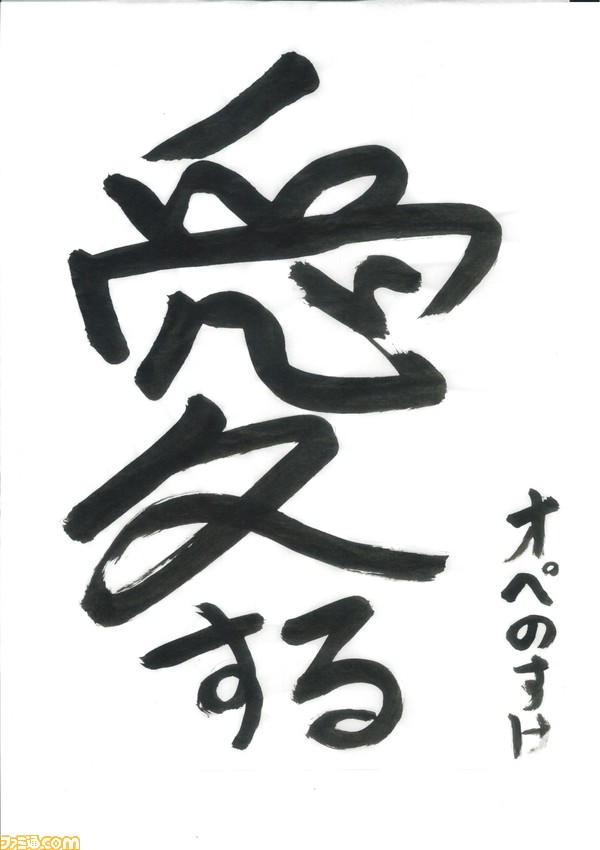 愛
する
オペのすけ
ファミ通.com